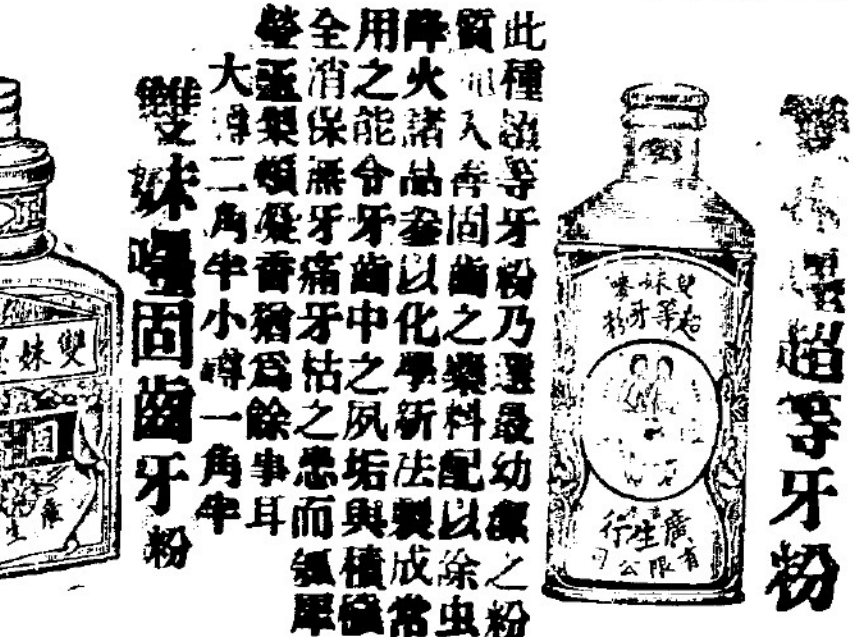 雙妹嘜超等牙粉
雙妹嘜
超等牙粉
廣生行
有限公司
此種超等牙粉乃選最幼潔之粉
質加入善固齒之藥料配以除虫
降火諸品叄以化學新法製成常
用之能令牙齒中之夙垢與積穢
全消保無牙痛牙枯之患而瓠犀
瑩玉梨頰凝香猶爲餘事耳
大罇二角半小罇一角半
雙妹嘜固齒牙粉
雙妹